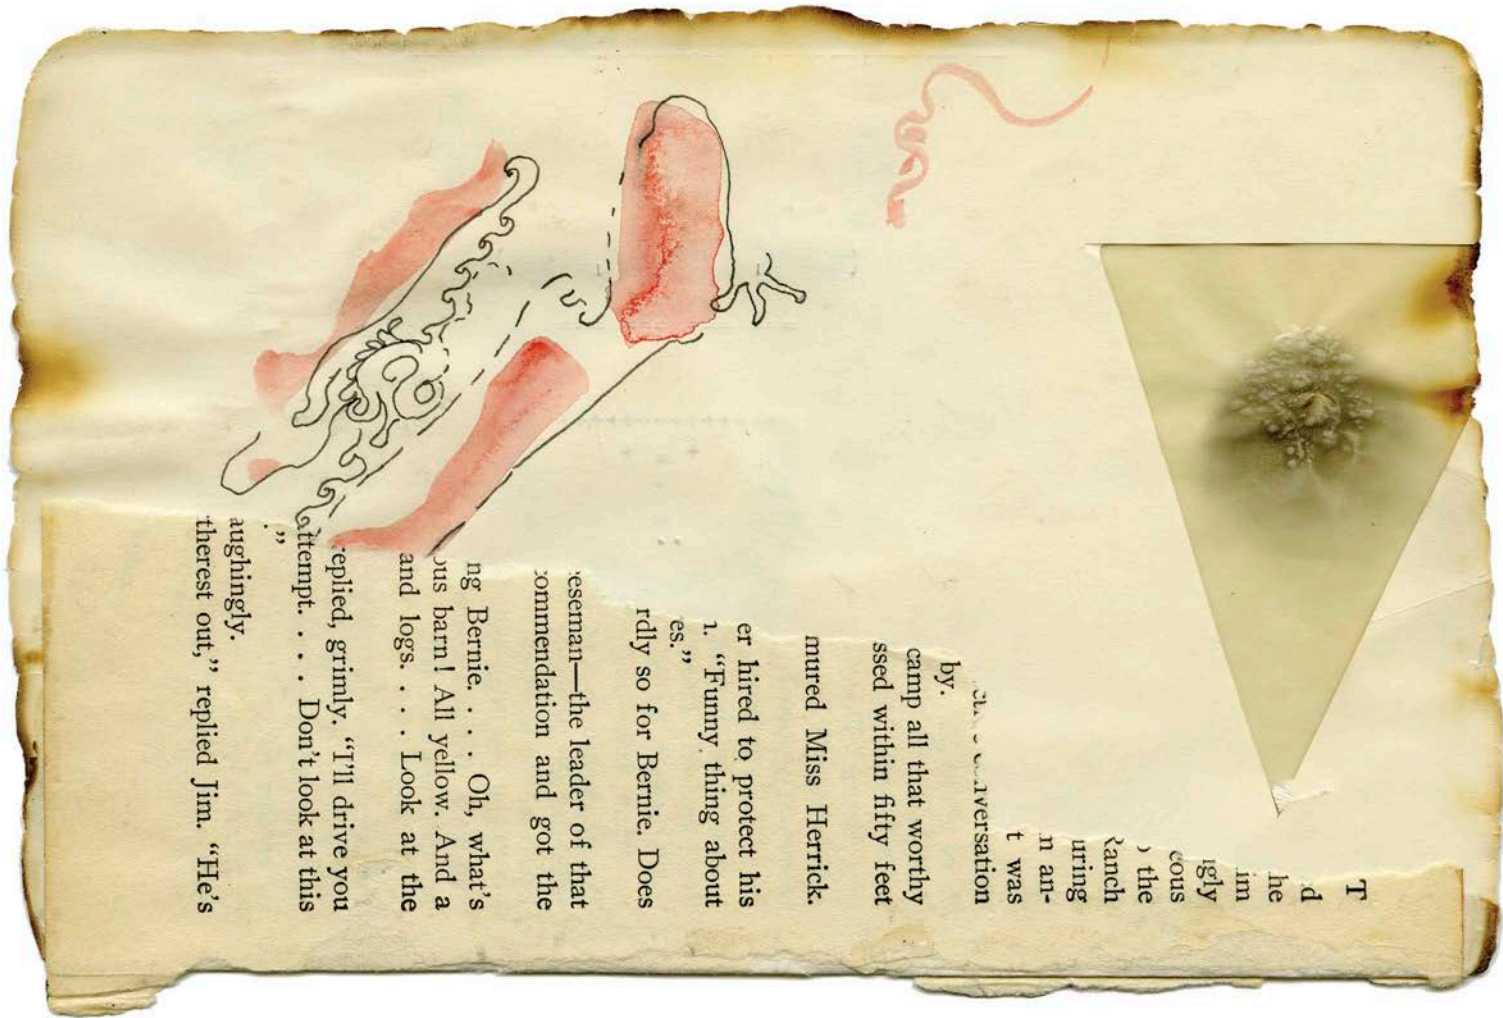 T
d
he
im
igly
eous
the
Ranch
uring
n an-
t was
nversation
by.
camp all that worthy
ssed within fifty feet
mured Miss Herrick.
er hired to protect his
"Funny thing about
es."
rdly so for Bernie. Does
eseman—the leader of that
ommendation and got the
ng Bernie. . . . Oh, what's
ous barn! All yellow. And a
and logs. . . . Look at the
replied, grimly. "I'll drive you
attempt. . . . Don't look at this
."
aughingly.
therest out," replied Jim. "He's